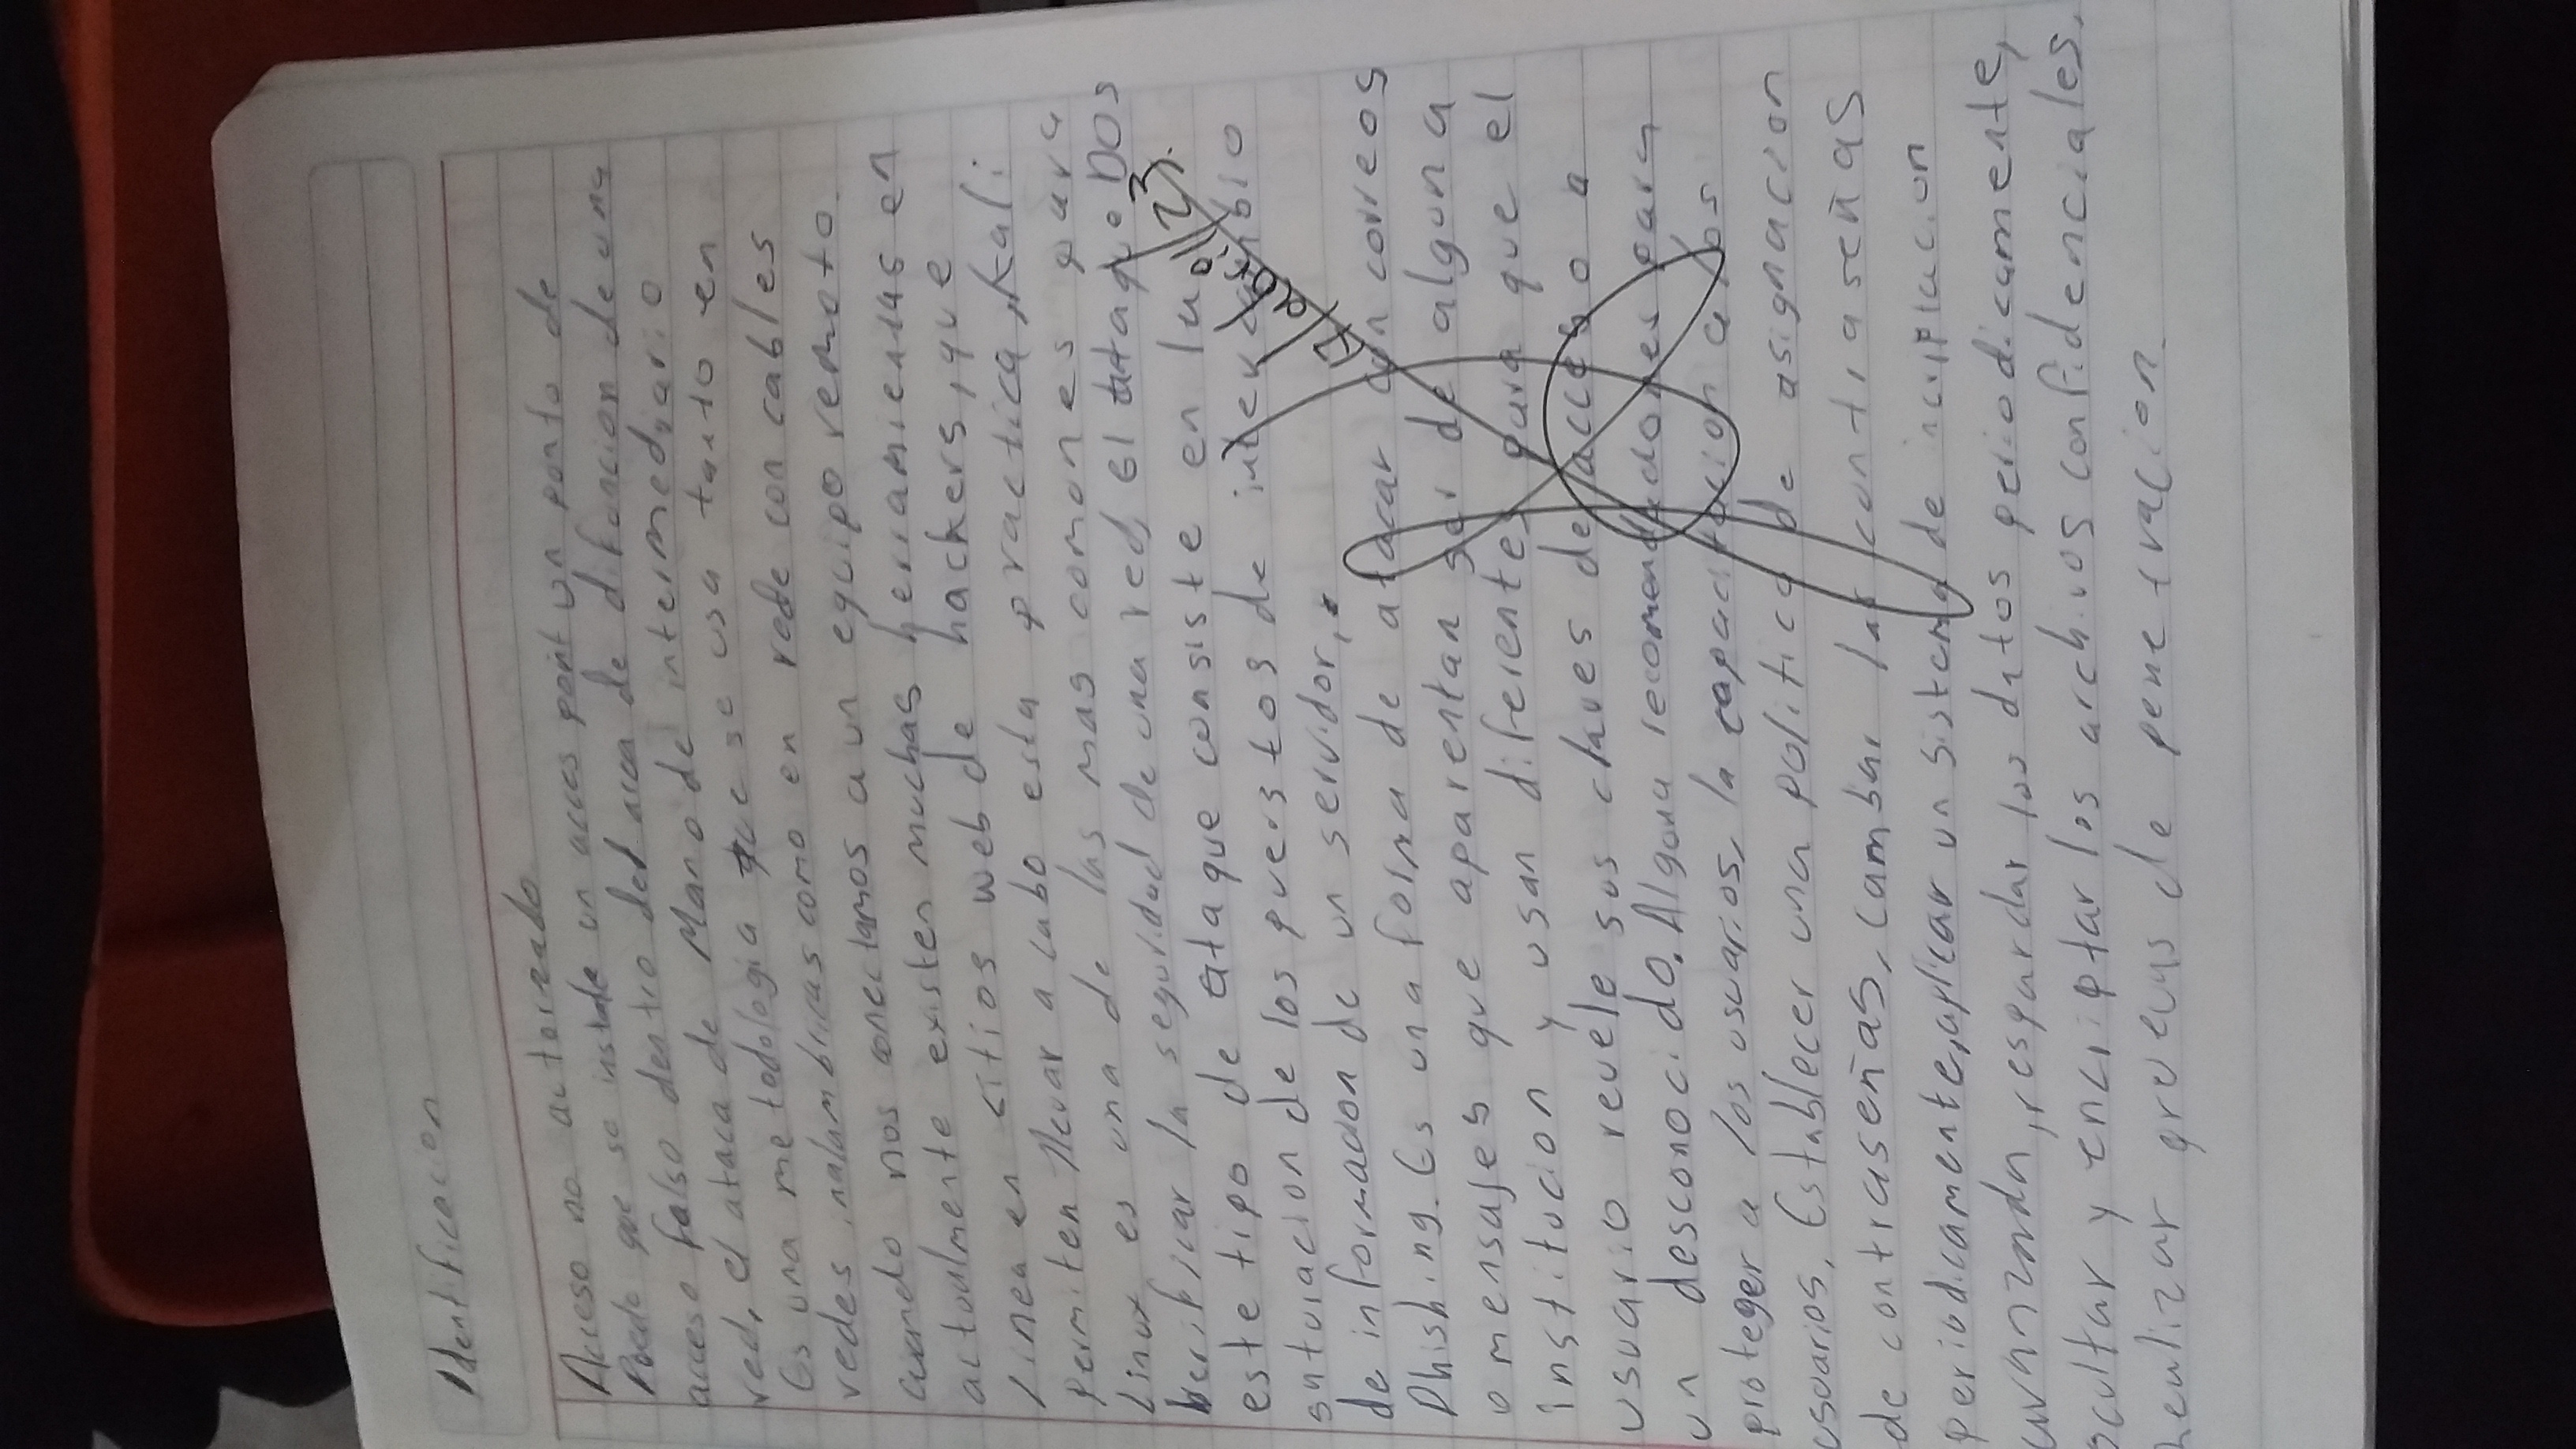 Identificacion
Acceso no actorizado
Puede que se instale un acces point un ponto de
acceso falso dentro del area de difuncion de una
red, el ataca de Mano de intermediario
Es una metodologia que se usa tanto en
redes inalambricas como en rede con cables
cuando nos conectamos a un equipo remoto.
actualmente existen muchas herramientas en
Linea en sitios web de hackers, que
permiten llevar a cabo esta practica, Kali
Linux es una de las mas comones para
berificar la seguridad de una red, El ataque DOS
este tipo de ataque consiste en la
saturacion de los puerstos de intercambio
de informacion de un servidor,
17/abril/23.
Phishing. Es una forma de atacar con correos
o mensajes que aparentan ser de alguna
institucion y usan diferentes para que el
usuario revele sus claves de acceso a
un desconocido. Alguna recomendaciones para
proteger a los usuarios, la capacitacion a los
usuarios, Establecer una politica de asignacion
de contraseñas, cambiar las contraseñas
periodicamente, aplicar un sistema de
avanzada, respardar los datos periodicamente,
ocultar y encriptar los archivos confidenciales.
Realizar pruevas de penetracion.